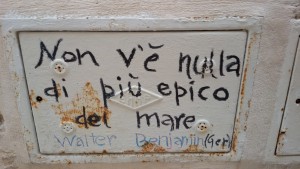 Non v'è nulla
di più epico
del mare
Walter Benjamin (Ger)